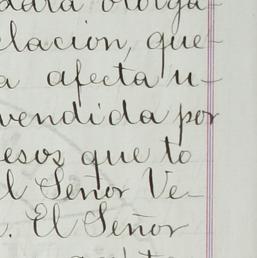 elacion, que
a afecta u-
vendida por
esos que to
l Señor Ve-
. El Señor